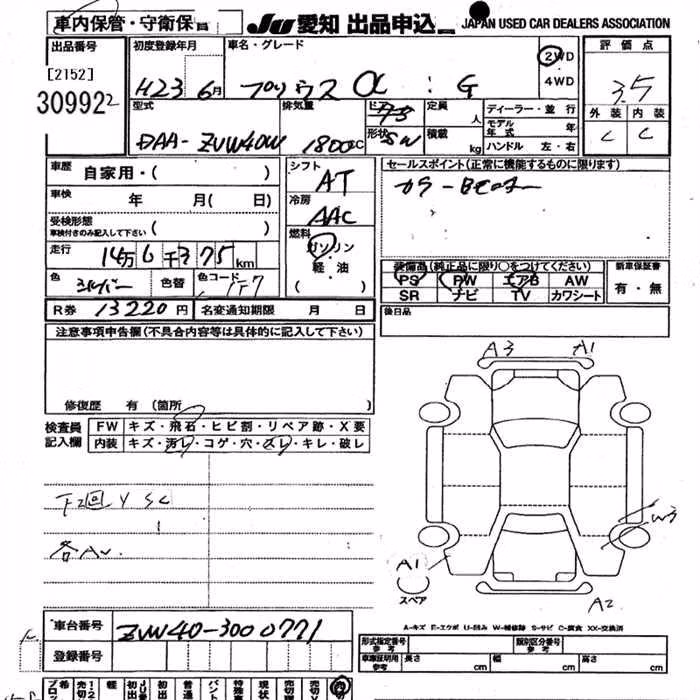 車内保管・守衛保管 JU 愛知 出品申込 JAPAN USED CAR DEALERS ASSOCIATION
出品番号 初度登録年月 車名・グレード 2WD 評価点
[2152] H23 6月 プリウス α : G 4WD 3.5
30992
型式 排気量 ドア 定員 人 ディーラー・並行 外装 内装
DAA-ZVW40W 1800CC 形状 SW 積載 kg モデル年式 年 C C
ハンドル 左・右
車歴 自家用・( ) シフト AT セールスポイント(正常に機能するものに限ります)
車検 年 月( 日) 冷房 AAC
受検形態 車検付きのみ記入して下さい ( )
走行 14万6千375km 燃料 ガソリン・軽油 ( )
装備品(純正品に限り○をつけてください) 新車保証書
PS PW エアB AW 有・無
SR ナビ TV カワシート
色 シルバー 色替 色コード 1F7
R券 13220円 名変通知期限 月 日 後日品
注意事項申告欄(不具合内容等は具体的に記入して下さい)
A3 A1
修復歴 有 (箇所 )
検査員記入欄 FW キズ・飛石・ヒビ割・リペア跡・X要
内装 キズ・汚レ・コゲ・穴・スレ・キレ・破レ
W3
各AU
A1
スペア
A2
A-キズ E-エクボ U-凹み W-補修跡 S-サビ C-腐食 XX-交換済
車台番号 ZVW40-3000771
登録番号
形式指定番号 参考 類別区分番号 参考
車庫証明用 参考 長さ cm 幅 cm 高さ cm